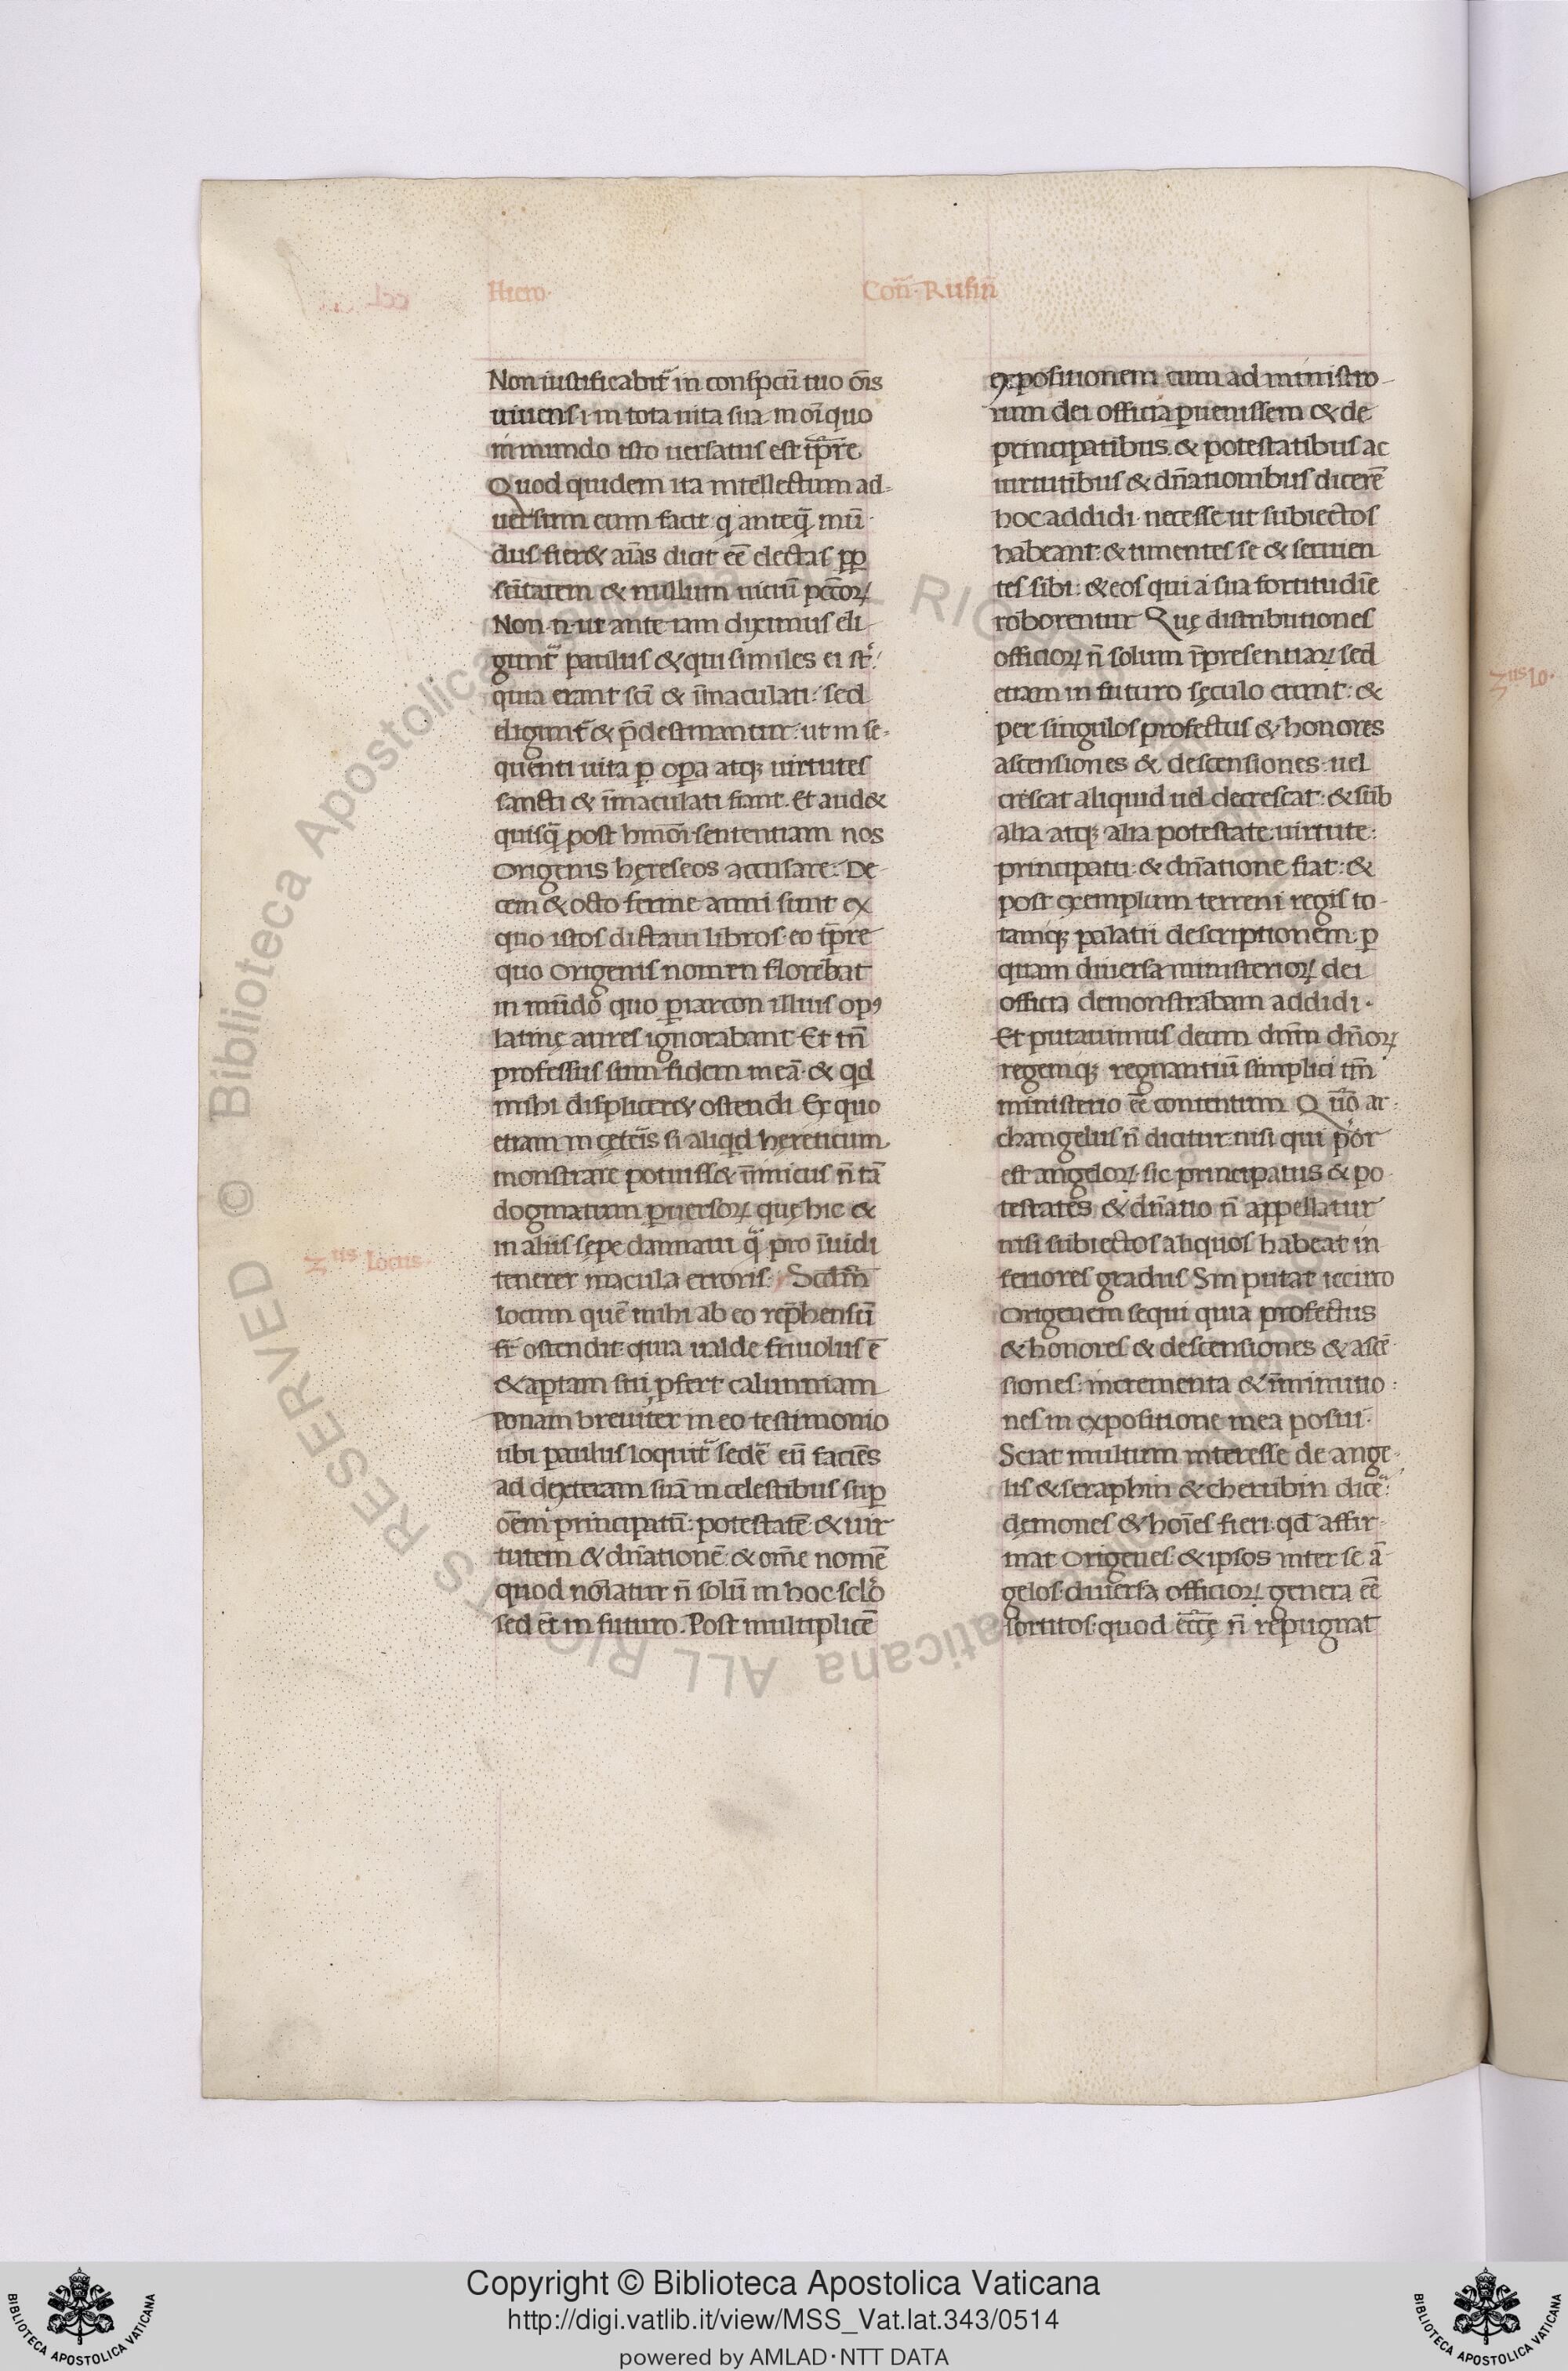 Hiero·
Con̄· Rufin̄
Non iustificabit᷑ in conspectu tuo om̄s
uiuens· i· in tota uita sua· in om̄i quo
in mundo isto uersatus est tp̄re
Quod quidem ita intellectum ad-
uersum eum facit· q anteq̄ mū-
dus fier& aīas dicit eē electas ꝓp
scītatem & nullum uitiū pcc̄oꝝ
Non n· ut ante iam diximus eli-
gunt᷑ paulus & qui similes ei st̄:
quia erant scī & īmaculati: sed
eligunt᷑ & p̄destinantur: ut in se-
quenti uita ꝑ opera atqꝫ uirtutes
sancti & īmaculati fiant. Et aud&
quisq̄ post hm̄oi sententiam nos
Origenis hęreseos accusare: De-
cem & octo ferme anni sunt ex
quo istos dictaui libros· eo tp̄re
quo Origenis nomen florebat
in mūdo quo periarcon illius opꝰ
latinę aures ignorabant Et tn̄
professus sum fidem meā· & qd
mihi displicer& ostendi Ex quo
etiam in cęteris si aliqd hęreticum
monstrare potuiss& īimicus n̄ tā
dogmatum ꝑuersoꝝ quę hic &
in aliis sępe damnaui q̄ pro īuidi
tenerer macula erroris· Scdm̄
zus Locus·
locum quē mihi ab eo rep̄hensū
sī ostendit· quia ualde friuolus ē
& aptam sui p̄fert calumniam
ponam breuiter in eo testimonio
ubi paulus loquit᷑ sedē eū faciēs
ad dexteram suā in celestibus suꝑ
oēm principatū: potestatē & uir
tutem & dn̄ationē & om̄e nomē
quod noīatur n̄ solū in hoc sclo
sed et̄ in futuro. Post multiplicē
expositionem cum ad ministro-
rum dei officia ꝑuenissem & de
principatibus & potestatibus ac
uirtutibus & dn̄ationibus dicerē
hoc addidi· necesse ut subiectos
habeant: & timentes se & seruien
tes sibi: & eos qui a sua fortitudīe
roborentur Quę distributiones
officioꝝ n̄ solum ī presentiaꝝ sed
etiam in futuro sęculo erunt: &
per singulos profectus & honores
ascensiones & descensiones: uel
crescat aliquid uel decrescat: & sub
alia atqꝫ alia potestate· uirtute:
principatu: & dn̄atione fiat: &
post exemplum terreni regis to-
tamqꝫ palatii descriptionem· ꝑ
quam diuersa ministerioꝝ dei
officia demonstrabam addidi·
Et putauimus deum dn̄m dn̄oꝝ
regemqꝫ regnantiū simplici tm̄
ministerio eē contentum Quō ar-
changelus n̄ dicitur· nisi qui prior
est angeloꝝ· sic principatus & po
testates & dn̄atio n̄ appellatur
nisi subiectos aliquos habeat in
feriores gradus Sin putat iccirco
Origenem sequi quia profectus
& honores & descensiones & ascē
siones: incrementa & īminutio-
nes in expositione mea posui·
Sciat multum interesse de ange-
lis & seraphin & cherubin dice:
dęmones & hoīes fieri· qd affir-
mat Origenes & ipsos inter se ā-
gelos· diuersa officioꝝ genera eē
sortitos· quod ecc̄ę n̄ repugnat
zus lo·
Copyright © Biblioteca Apostolica Vaticana
http://digi.vatlib.it/view/MSS_Vat.lat.343/0514
powered by AMLAD·NTT DATA
BIBLIOTECA APOSTOLICA VATICANA
BIBLIOTECA APOSTOLICA VATICANA
© Biblioteca Apostolica Vaticana ALL RIGHTS RESERVED